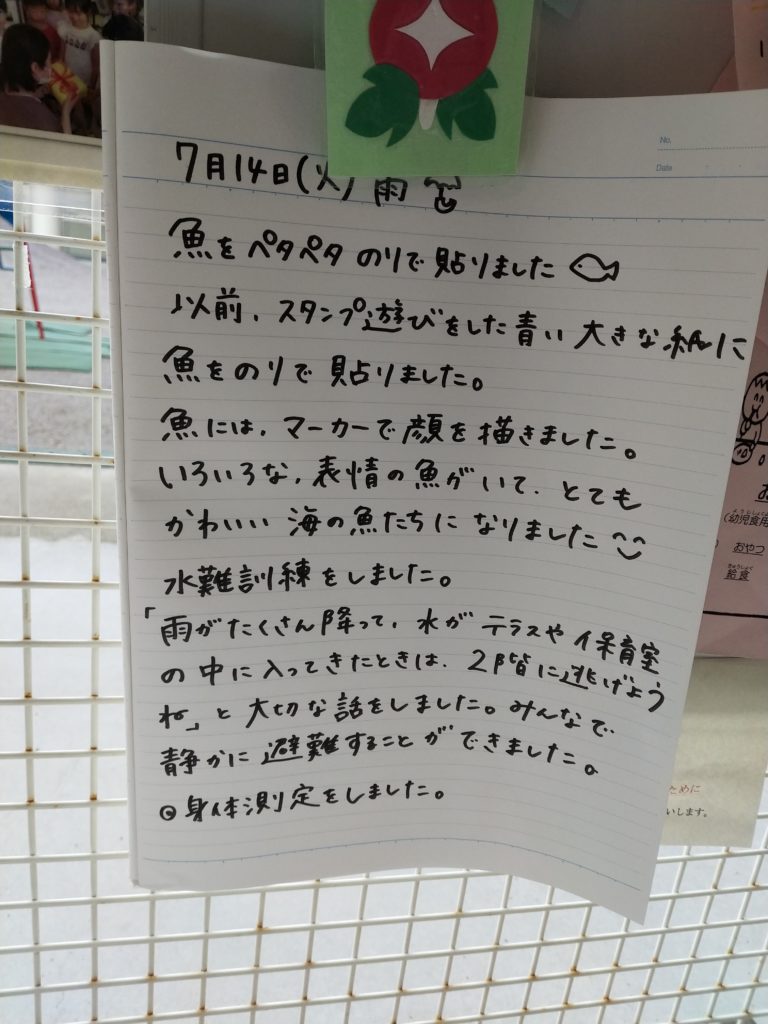 No.
Date
7月14日(火) 雨
魚をペタペタのりで貼りました
以前、スタンプ遊びをした青い大きな紙に
魚をのりで貼りました。
魚には、マーカーで顔を描きました。
いろいろな、表情の魚がいて、とても
かわいい海の魚たちになりました
水難訓練をしました。
「雨がたくさん降って、水がテラスや保育室
の中に入ってきたときは、2階に逃げよう
ね」と大切な話をしました。みんなで
静かに避難することができました。
◎身体測定をしました。
(幼児食用
おやつ
給食
ために
いします。